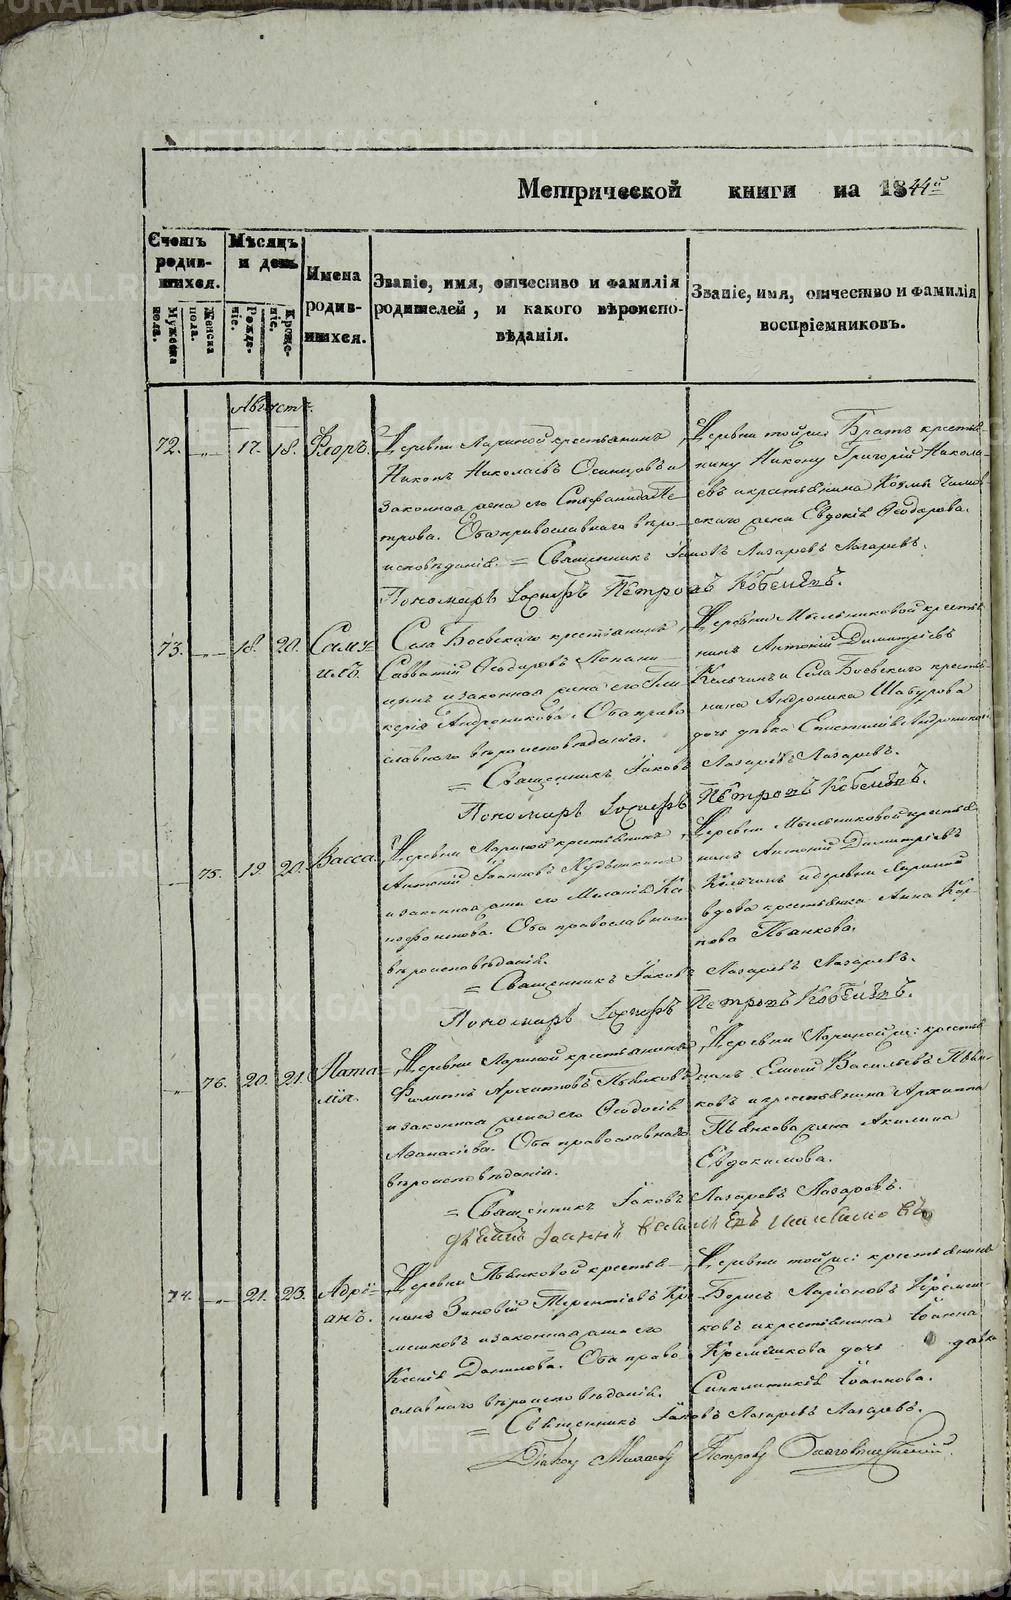 Метрической книги на 1844й
Счетъ родив-шихся.
Мужеска пола.
Женска пола.
Мѣсяцъ и день
Рожде-ніе.
Креще-ніе.
Имена родив-шихся.
Званіе, имя, отчество и фамилія
родителей, и какого вѣроиспо-
вѣданія.
Званіе, имя, отчество и фамилія
воспріемниковъ.
Августъ.
72. 17. 18. Флоръ.
Деревни Лариной крестьянинъ
Никонъ Николаевъ Осинцовъ и
законная жена его Стефанида Пе-
трова. Оба православнаго вѣро-
исповѣданія. = Священникъ Іаковъ Лазаревъ Лазаревъ.
Пономарь Петровъ
Деревни той же Братъ крестья-
нину Никону Григорій Никола-
евъ и крестьянина Козмы
жена Евдокія Ѳеодорова.
73. 18. 20. Саму-
илъ.
Села Боевскаго крестьянинъ
Савватій Ѳеодоровъ
и законная жена его Гли-
керія Андроникова. Оба право-
славнаго вѣроисповѣданія.
= Священникъ Іаковъ Лазаревъ Лазаревъ.
Пономарь Петровъ
Деревни Мыльниковой крестья-
нинъ Антоній Димитріевъ
Кельчинъ и Села Боевскаго крестья-
нина Андроника Шабурова
дочь дѣвка Епистимія Андроникова.
75. 19. 20. Васса.
Деревни Лариной крестьянинъ
Антоній Іоанновъ
и законная жена его Меланія Ка-
. Оба православнаго
вѣроисповѣданія.
= Священникъ Іаковъ Лазаревъ Лазаревъ.
Пономарь Петровъ
Деревни Мыльниковой крестья-
нинъ Антоній Димитріевъ
Кельчинъ и деревни Лариной
вдова крестьянка Анна Кар-
пова Пьянкова.
76. 20. 21. Ната-
лія.
Деревни Лариной крестьянинъ
Филиппъ Архиповъ Пьянковъ
и законная жена его Ѳеодосія
Аѳанасіева. Оба православнаго
вѣроисповѣданія.
= Священникъ Іаковъ Лазаревъ Лазаревъ.
Деревни Лариной же крестья-
нинъ Елисей Васильевъ Пьян-
ковъ и крестьянина Архиппа
Пьянкова жена Акилина
Евдокимова.
74. 21. 23. Адрі-
анъ.
Деревни Пьянковой крестья-
нинъ Зиновій Терентіевъ Кре-
мешковъ и законная жена его
Ксенія Данилова. Оба право-
славнаго вѣроисповѣданія.
= Священникъ Іаковъ Лазаревъ Лазаревъ.
Діаконъ Петровъ
Деревни той же: крестьянинъ
Борисъ Ларіоновъ Кремеш-
ковъ и крестьянина Іоанна
Кремешкова дочь дѣвка
Синклитикія Іоаннова.